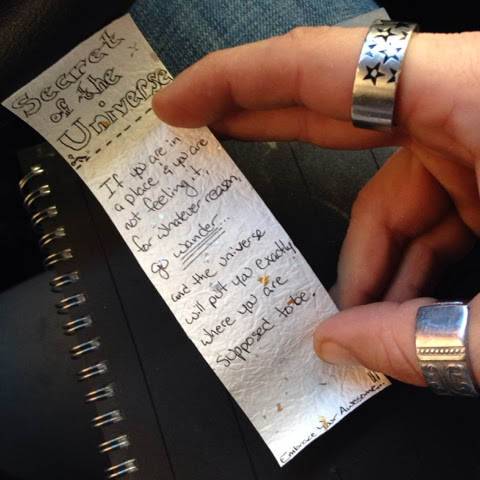 Secret
of the
Universe
If you are in
a place & you are
not feeling it,
for whatever reason,
go wander...
and the universe
will pull you exactly
where you are
supposed to be.
Embrace Your Awesome...